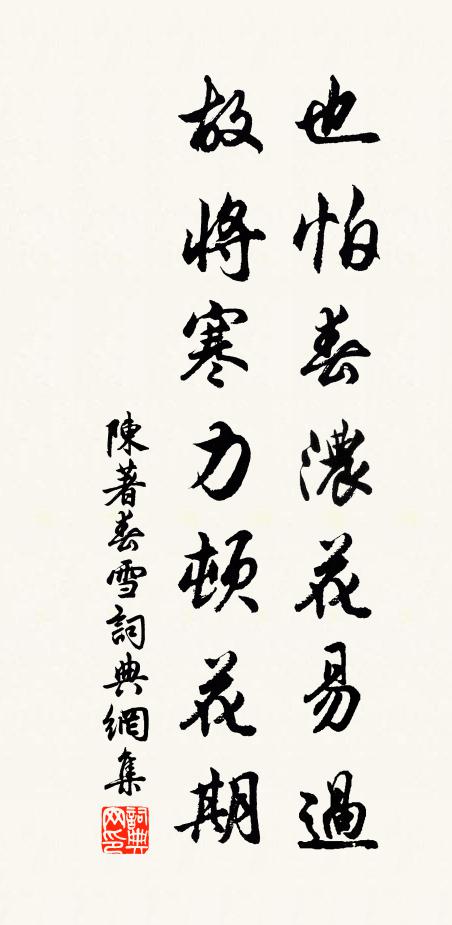 也怕春濃花易過
故將寒力頓花期
陳著春雪詞典網集
詞典網印